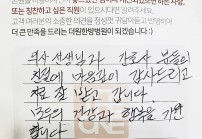 또는 칭찬하고 싶은 직원이 있으시다면 알려주세요.
고객 여러분의 소중한 의견을 정성껏 귀담아듣고 반영하여
더 큰 만족을 드리는 더원한방병원이 되겠습니다 :)
의사 선생님과 간호사 분들의
친절에 마음깊이 감사드리고
치료 잘 받고 갑니다.
모두의 건강과 행복을 기원
합니다.
ONE